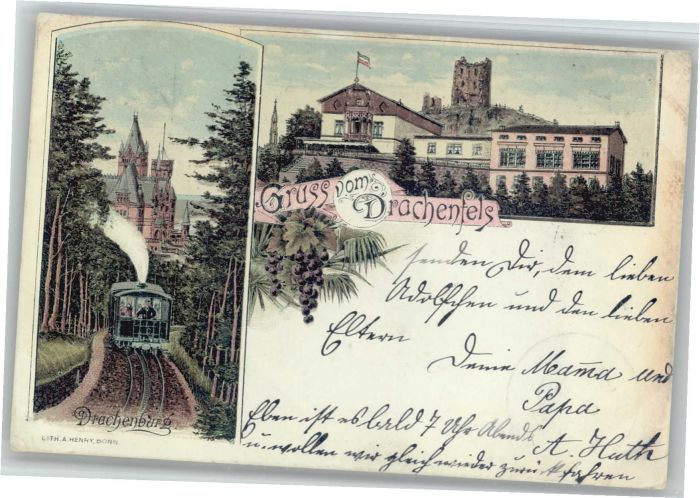 Gruss vom
Drachenfels
senden Dir, dem lieben
Adölfchen und den lieben
Eltern
Deine Mama und
Papa
A. Huth
Eben ist es bald 7 Uhr Abends
u. wollen wir gleich wieder zurückfahren
Drachenburg
LITH. A. HENRY, BONN.